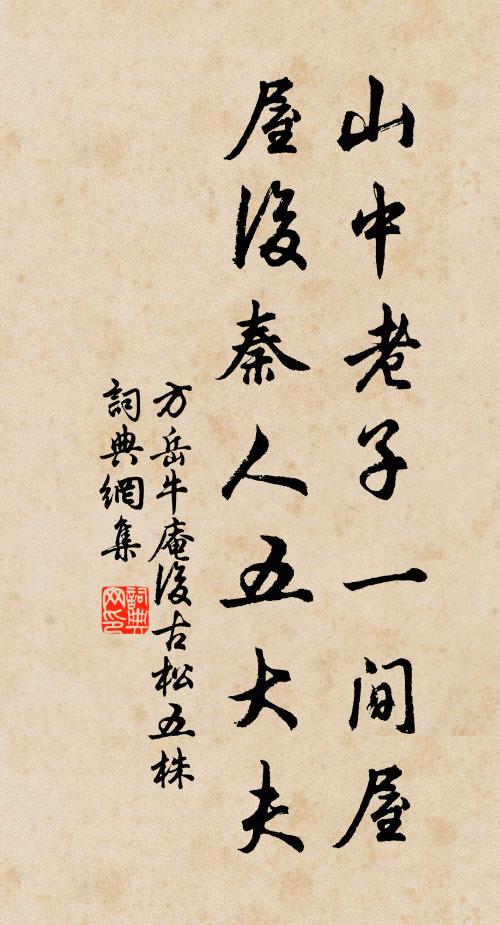 山中老子一間屋
屋後秦人五大夫
方岳牛庵後古松五株
詞典網集
詞典网印